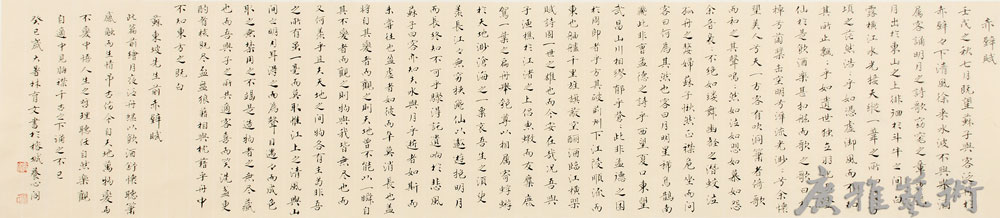 赤壁賦
壬戌之秋七月既望蘇子與客泛舟遊於
赤壁之下清風徐來水波不興舉酒
屬客誦明月之詩歌窈窕之章少焉
月出於東山之上徘徊於斗牛之間白
露橫江水光接天縱一葦之所如凌萬
頃之茫然浩浩乎如憑虛御風而不知
其所止飄飄乎如遺世獨立羽化而登
仙於是飲酒樂甚扣舷而歌之歌曰桂
棹兮蘭槳擊空明兮泝流光渺渺兮余懷
望美人兮天一方客有吹洞簫者倚歌
而和之其聲嗚嗚然如怨如慕如泣如訴
餘音嫋嫋不絕如縷舞幽壑之潛蛟泣
孤舟之嫠婦蘇子愀然正襟危坐而問
客曰何為其然也客曰月明星稀烏鵲南
飛此非曹孟德之詩乎西望夏口東望
武昌山川相繆鬱乎蒼蒼此非孟德之困
於周郎者乎方其破荊州下江陵順流而
東也舳艫千里旌旗蔽空釃酒臨江橫槊
賦詩固一世之雄也而今安在哉況吾與
子漁樵於江渚之上侶魚蝦而友麋鹿
駕一葉之扁舟舉匏樽以相屬寄蜉蝣
於天地渺滄海之一粟哀吾生之須臾
羨長江之無窮挾飛仙以遨遊抱明月
而長終知不可乎驟得託遺響於悲風
蘇子曰客亦知夫水與月乎逝者如斯而
未嘗往也盈虛者如彼而卒莫消長也蓋
將自其變者而觀之則天地曾不能以一瞬自
其不變者而觀之則物與我皆無盡也而
又何羨乎且夫天地之間物各有主苟非吾
之所有雖一毫而莫取惟江上之清風與山
間之明月耳得之而為聲目遇之而成
色取之無禁用之不竭是造物者之無盡藏
也而吾與子之所共適客喜而笑洗盞更
酌肴核既盡盃盤狼籍相與枕藉乎舟中
不知東方之既白
蘇東坡先生前赤壁賦
此篇前繪夜泛舟以飲酒舒懷聽簫
感觸而生情吊古今日天地萬物變而
不變中悟人生之哲理聽任自然樂觀
自適中見幽深千古之下誦之不已
癸巳歲大暑林育文書於榕城養心閣
廣雅藝術